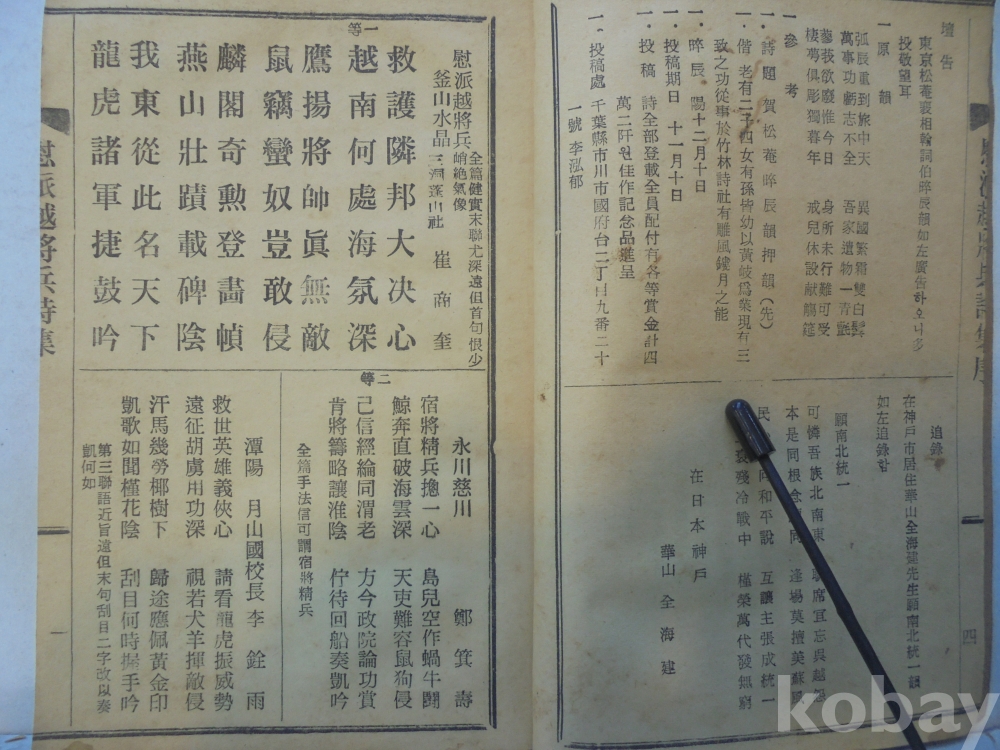 壇告
東京松菴裵相翰詞伯晬辰韻如左廣告하오니多
投敬望耳
一 原韻
弧辰重到旅中天 異國繁霜雙白鬂
萬事功虧志不全 吾家遺物一靑氈
蓼莪欲廢惟今日 身所未行難可受
棲夢俱彫獨暮年 戒兒休設献觴筵
一 參考
一・詩題 賀松菴晬辰韻押韻(先)
一・偕老有二子四女有孫皆幼以黃岐爲業現有三
致之功從事於竹林詩社有雕風鏤月之能
一・晬辰 陽十二月十日
一・投稿期日 十一月十日
一・投稿 詩全部登載全員配付有各等賞金計四
萬二阡원佳作記念品進呈
一・投稿處 千葉縣市川市國府台二丁目九番二十
一號 李泓郁
追錄
在神戶市居住華山全海建先生願南北統一韻
如左追錄함
願南北統一
可憐吾族北南東 席宜忘吳越
本是同根念 同 逢場莫擅英蘇
民 向和平說 互讓主張成統一
殘冷戰中 槿榮萬代發無窮
在日本神戶
華山 全海建
四
慰派越將兵詩集
慰派越將兵 全篇健實末聯尤深遠但首句恨少峭絶氣像
釜山水晶 三洞蓬山社 崔商奎
一等
救護隣邦大決心
越南何處海氛深
鷹揚將帥眞無敵
鼠竊蠻奴豈敢侵
麟閣奇勳登畵幀
燕山壯蹟載碑陰
我東從此名天下
龍虎諸軍捷鼓吟
永川慈川 鄭箕壽
二等
宿將精兵摠一心 島兒空作蝸牛鬪
鯨奔直破海雲深 天吏難容鼠狗侵
己信經綸同渭老 方今政院論功賞
肯將籌略讓淮陰 佇待回船奏凱吟
全篇手法信可謂宿將精兵
潭陽 月山國校長 李銓雨
救世英雄義俠心 請看龍虎振威勢
遠征胡虜用功深 視若犬羊揮敵侵
汗馬幾勞椰樹下 歸途應佩黃金印
凱歌如聞槿花陰 刮目何時握手吟
第三聯語近旨遠但末句刮目二字改以奏
凱何如
kobay